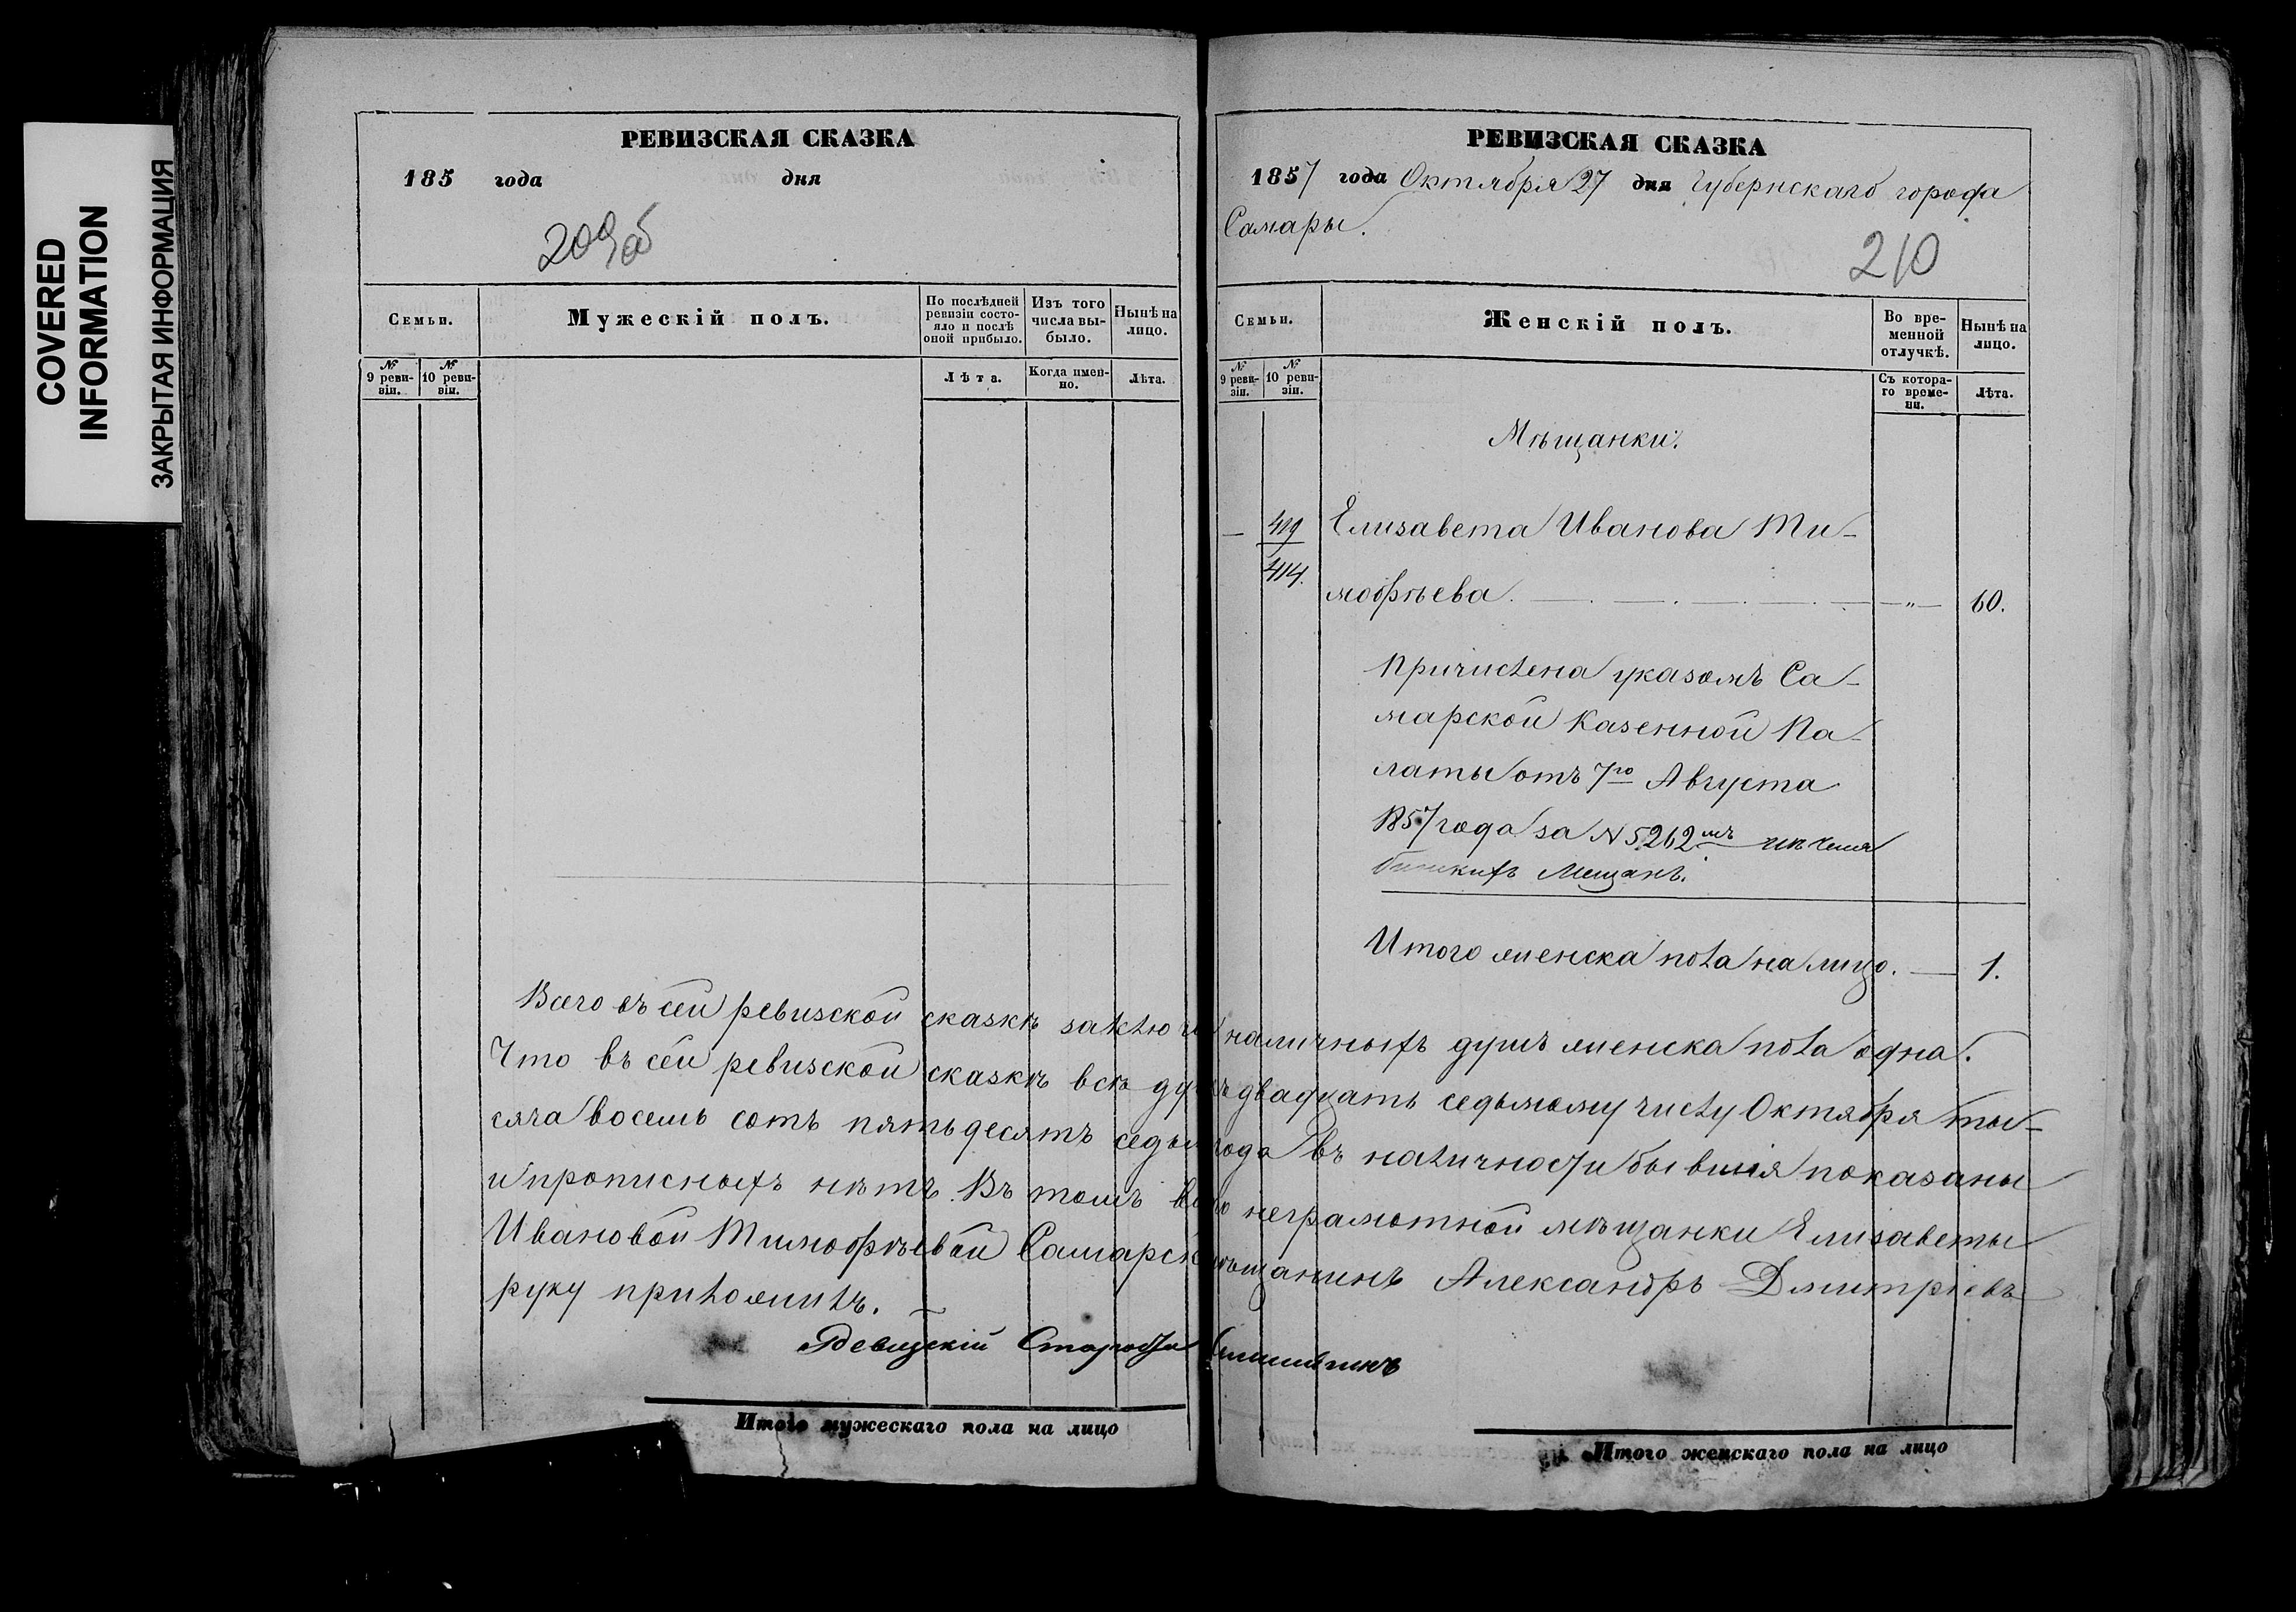 COVERED
INFORMATION
ЗАКРЫТАЯ ИНФОРМАЦИЯ
РЕВИЗСКАЯ СКАЗКА
185 года дня
209об
Семьи.
Мужескій полъ.
По послѣдней ревизіи состояло и послѣ оной прибыло.
Изъ того числа выбыло.
Нынѣ на лицо.
№ 9 ревизіи.
№ 10 ревизіи.
Лѣта.
Когда именно.
Лѣта.
РЕВИЗСКАЯ СКАЗКА
1857 года Октября 27 дня Губернскаго города
Самары.
210
Семьи.
Женскій полъ.
Во временной отлучкѣ.
Нынѣ на лицо.
№ 9 ревизіи.
№ 10 ревизіи.
Съ котораго времени.
Лѣта.
Мѣщанки:
— 419 Елизавета Иванова Ти-
414. мофѣева. — " — 60.
Причислена указомъ Са-
марской Казенной Па-
латы отъ 7го Августа
1857 года за N 5262мъ
Мещанъ.
Итого женска пола на лицо. — 1.
Всего въ сей ревизской сказкѣ заключ наличныхъ душъ женска пола одна.
Что въ сей ревизской сказкѣ всѣ душ двадцать седьмому числу Октября ты-
сяча восемь сотъ пятьдесятъ седьм года въ наличности бывшія показаны
и прописныхъ нѣтъ. Въ томъ вм неграмотной мѣщанки Елизаветы
Ивановой Тимофѣевой Самарск мѣщанинъ Александръ Дмитріевъ
руку приложилъ.
Ревизскій Староста
Итого мужескаго пола на лицо
Итого женскаго пола на лицо